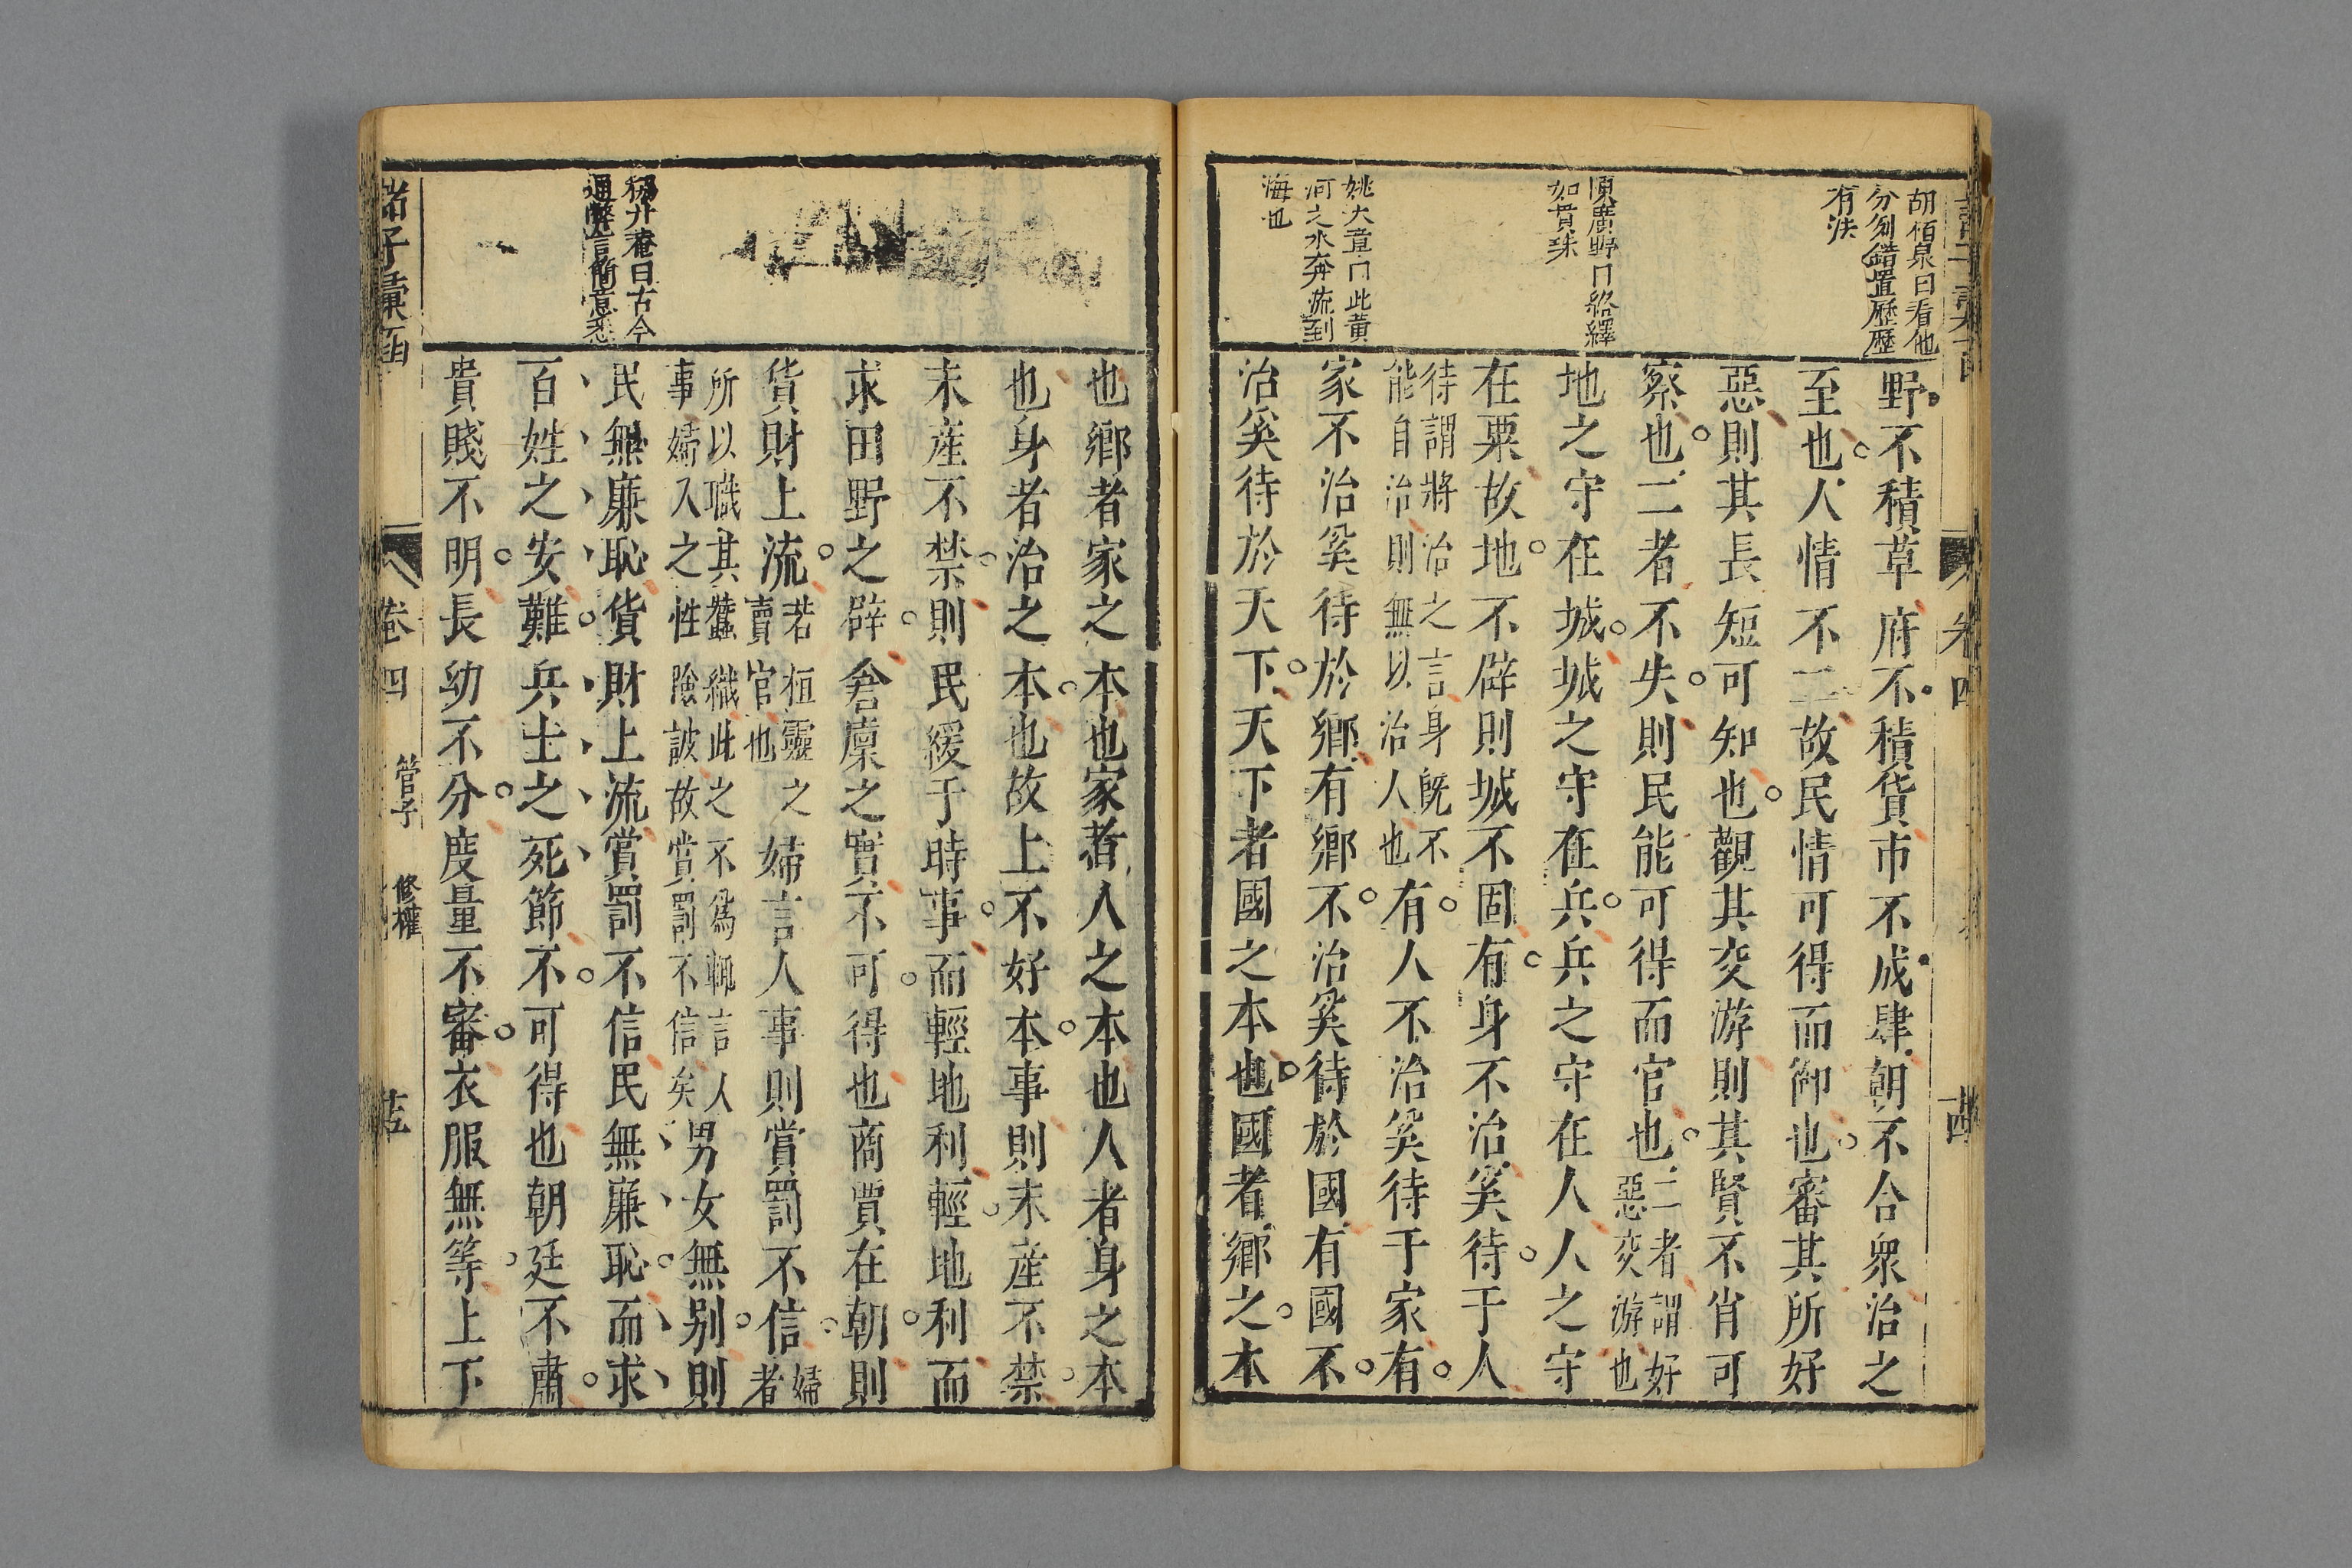 胡栢泉曰看他
分別錯置歷歷
有法
頋廣野曰絡繹
如貫珠
姚大章曰此黃
河之水奔流到
海也
野不積草府不積貨市不成肆朝不合衆治之
至也人情不二故民情可得而御也審其所好
惡則其長短可知也觀其交游則其賢不肖可
察也二者不失則民能可得而官也二者謂好惡交游也
地之守在城城之守在兵兵之守在人人之守
在粟故地不辟則城不固有身不治奚待于人
待謂將治之言身旣不能自治則無以治人也有人不治奚待于家有
家不治奚待於鄉有鄉不治奚待於國有國不
治奚待於天下天下者國之本也國者鄉之本
楊升菴曰古今
通弊言簡意悉
也鄉者家之本也家者人之本也人者身之本
也身者治之本也故上不好本事則末產不禁
末產不禁則民緩于時事而輕地利輕地利而
求田野之辟倉廩之實不可得也商賈在朝則
貨財上流若桓靈之賣官也婦言人事則賞罰不信婦者
所以職其蠶織此之不爲輙言人事婦人之性險詖故賞罰不信矣男女無别則
民無廉恥貨財上流賞罰不信民無廉恥而求
百姓之安難兵士之死節不可得也朝廷不肅
貴賤不明長幼不分度量不審衣服無等上下
諸子彙函
卷四
管子
修權